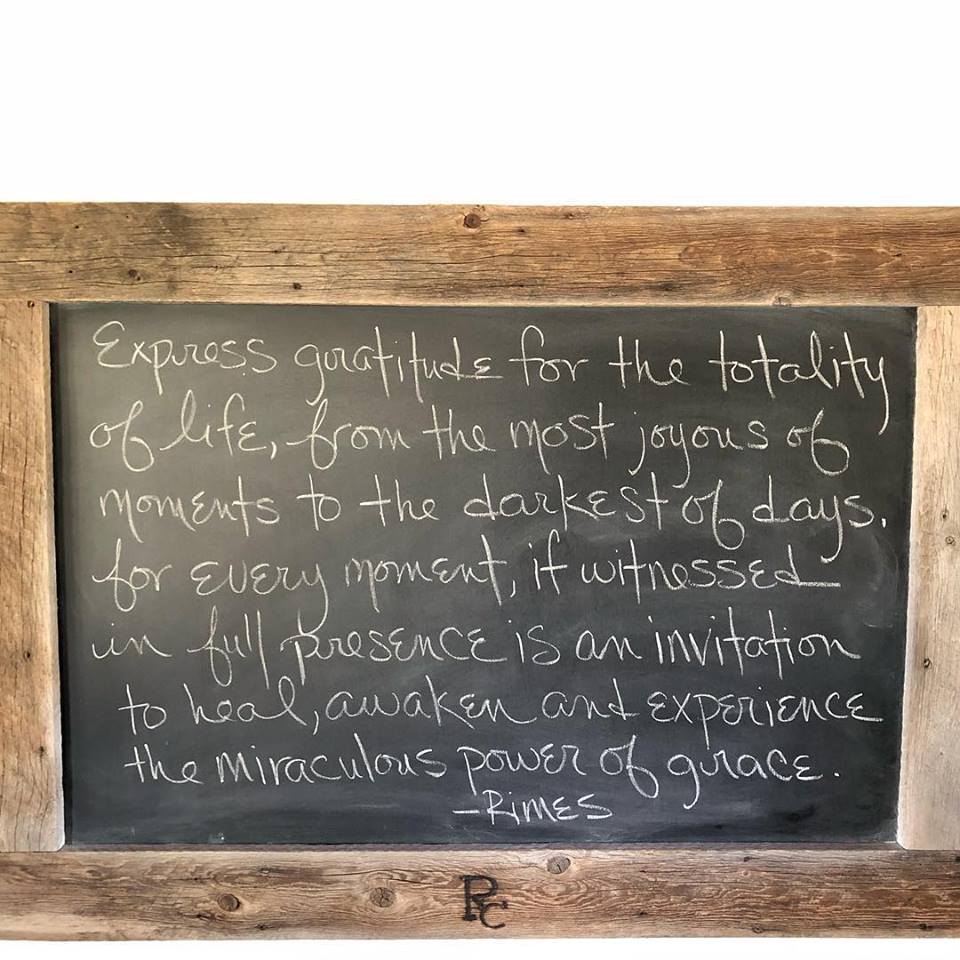 Express gratitude for the totality
of life, from the most joyous of
moments to the darkest of days.
for every moment, if witnessed
in full presence is an invitation
to heal, awaken and experience
the miraculous power of grace.
-Rimes
RC